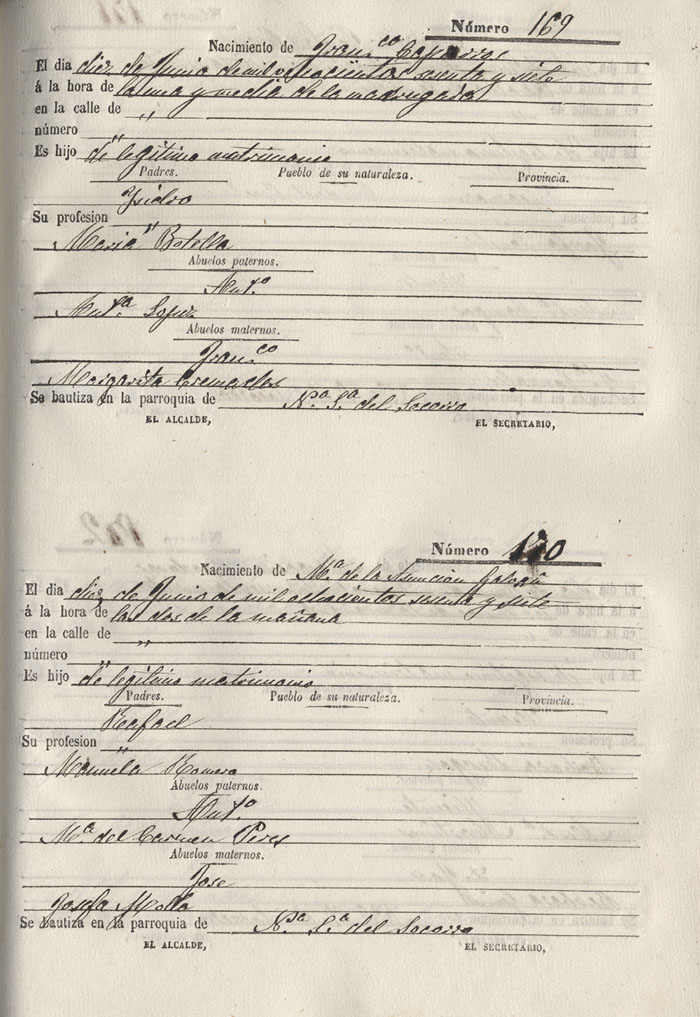 Número 169
Nacimiento de Fran.co Caparros
El día diez de Junio de mil ochocientos sesenta y siete
á la hora de la una y media de la madrugada
en la calle de "
número "
Es hijo de legitimo matrimonio
Padres. Pueblo de su naturaleza. Provincia.
Ysidro
Su profesion "
Maria Botella
Abuelos paternos.
Ant.o
Ant.a Lopez
Abuelos maternos.
Fran.co
Margarita Cremades
Se bautiza en la parroquia de N.a S.a del Socorro
EL ALCALDE, EL SECRETARIO,
Número 170
Nacimiento de M.a de la Asuncion
El día diez de Junio de mil ochocientos sesenta y siete
á la hora de las dos de la mañana
en la calle de "
número "
Es hijo de legitimo matrimonio
Padres. Pueblo de su naturaleza. Provincia.
Rafael
Su profesion "
Manuela Romero
Abuelos paternos.
Ant.o
M.a del Carmen Peres
Abuelos maternos.
Jose
Josefa Molla
Se bautiza en la parroquia de N.a S.a del Socorro
EL ALCALDE, EL SECRETARIO,